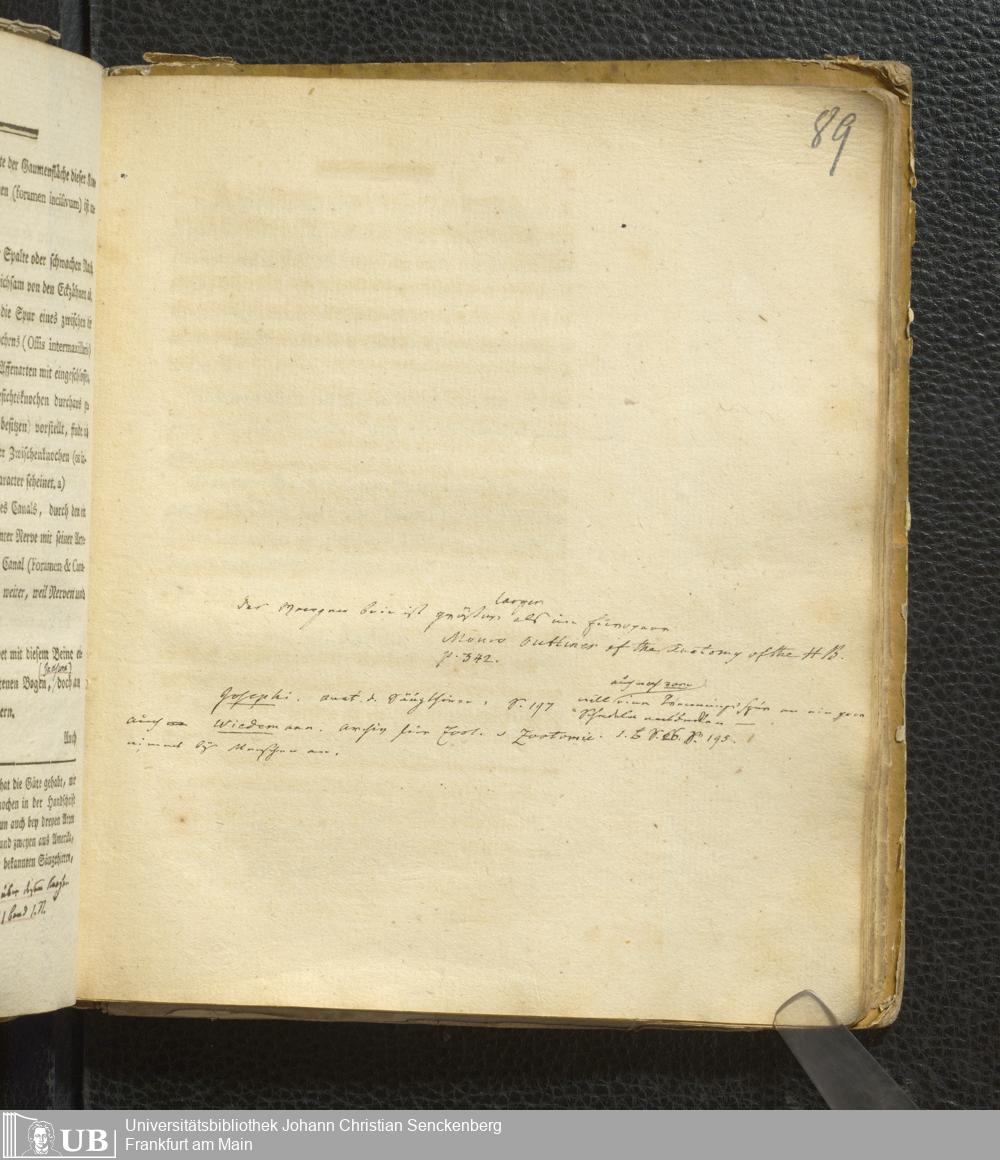 te der Gaumenfläche dieser
en (foramen incisivum) ist
Spalte oder schwachen
ichsam von den Eckzähnen ab,
die Spur eines zwischen
chens (Ossis intermaxillaris)
Affenarten mit eingeschlossen,
esichtsknochen durchaus zu
besitzen) vorstellt, finde ich
er Zwischenknochen
aracter scheinet. a)
es Canals, durch den
nter Nerve mit seiner
Canal (Foramen & Can-
weiter, weil Nerven und
et mit diesem Beine
enen Bogen, doch an
ern.
Nach
hat die Güte gehabt, mir
ochen in der Handschrift
un auch bey dreyen Arten
und zweyen aus Amerika,
bekannten Säugthieren,
über diesen
1 Band S.
89
larger
Das ist größer als im Europaeer
Monro Outlines of the Anatomy of the H B.
p. 342.
auch noch
Josephi. anat. d. Säugthiere. S. 197 will eine an ein
Schedeln
auch Wiedemann. Archiv für Zool. u Zootomie. 1. B S. 195.
nimmt bey Menschen an.
UB
Universitätsbibliothek Johann Christian Senckenberg
Frankfurt am Main